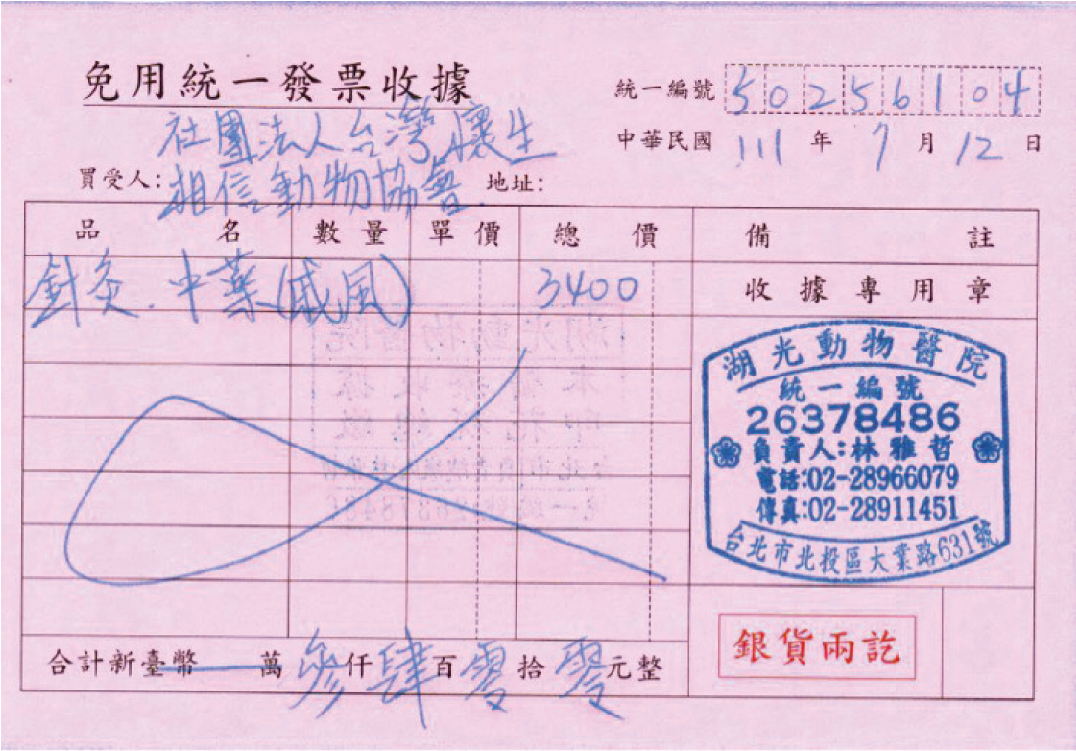 免用統一發票收據
統一編號 50256104
中華民國 111 年 7 月 12 日
買受人: 社團法人台灣懷生
相信動物協會.
地址:
品名 數量 單價 總價 備註
針灸.中藥(戚風) 3400
收據專用章
湖光動物醫院
統一編號
26378486
負責人:林雅哲
電話:02-28966079
傳真:02-28911451
台北市北投區大業路631號
銀貨兩訖
合計新臺幣 萬 參 仟 肆 百 零 拾 零 元整